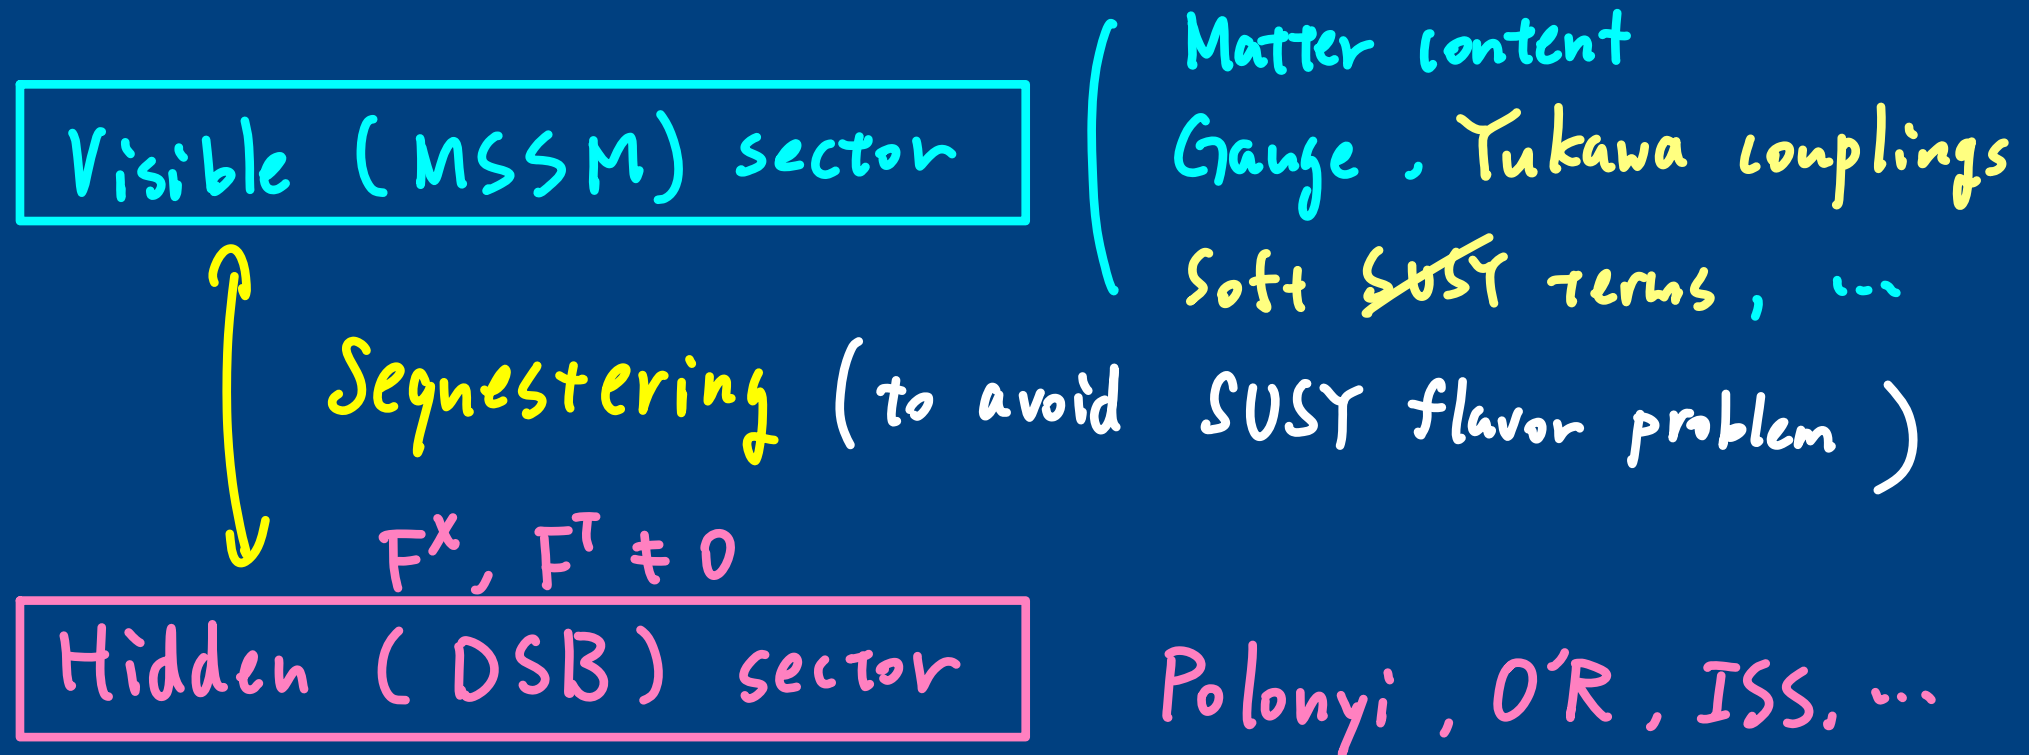 Matter content
Visible (MSSM) sector
Gauge, Yukawa couplings
Soft SUSY terms, ...
Sequestering (to avoid SUSY flavor problem)
F^X, F^T ≠ 0
Hidden (DSB) sector
Polonyi, O'R, ISS, ...